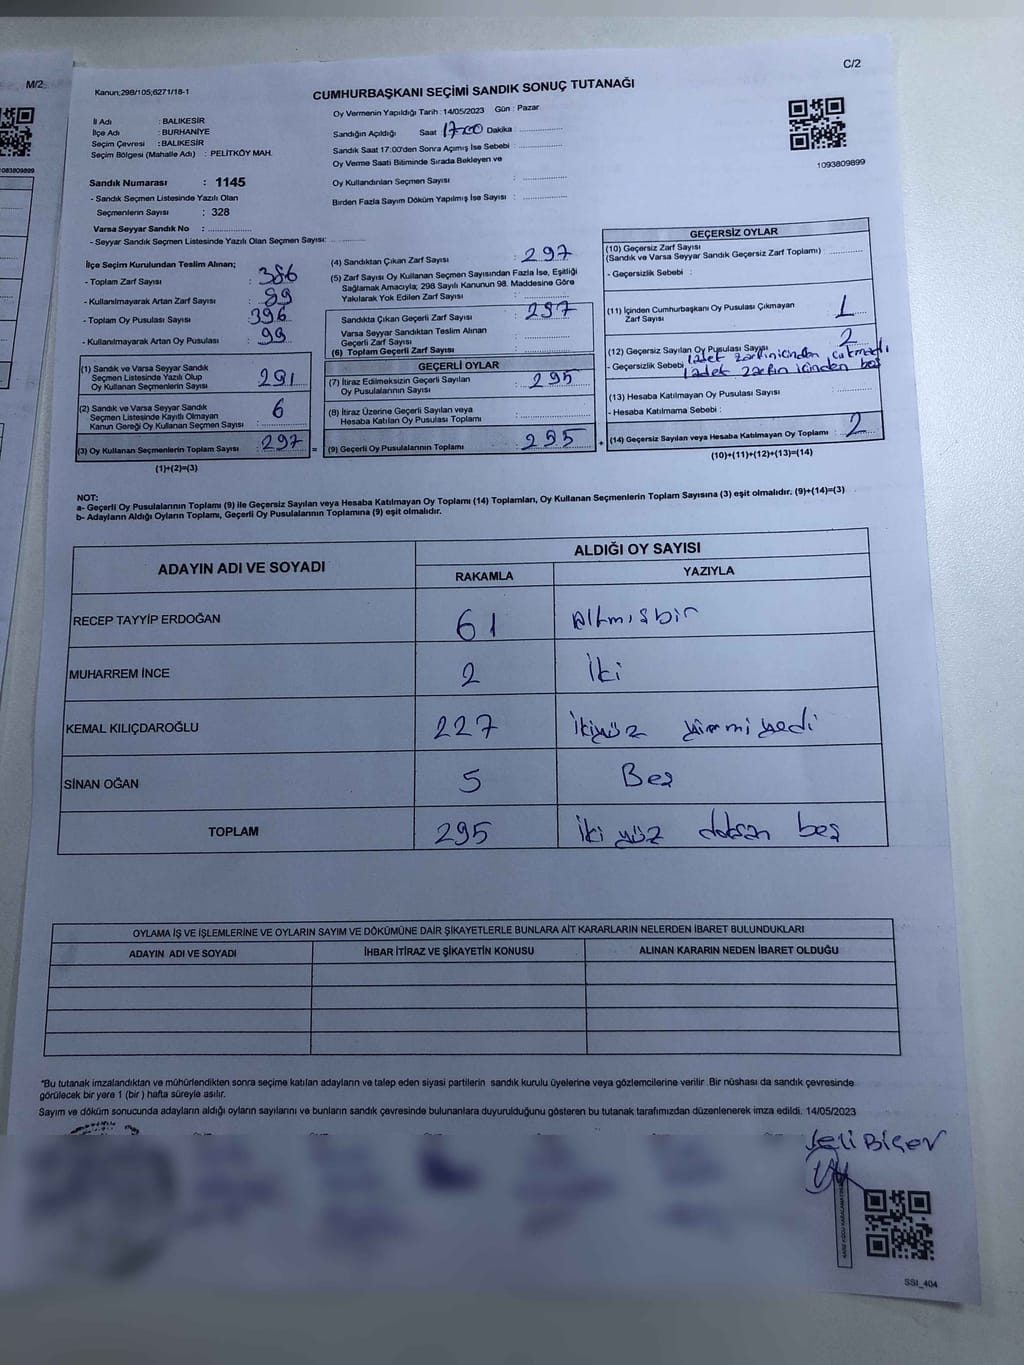 M/2
C/2
Kanun;298/105;6271/18-1
CUMHURBAŞKANI SEÇİMİ SANDIK SONUÇ TUTANAĞI
İl Adı : BALIKESİR
İlçe Adı : BURHANİYE
Seçim Çevresi : BALIKESİR
Seçim Bölgesi (Mahalle Adı) : PELİTKÖY MAH.
Oy Vermenin Yapıldığı Tarih : 14/05/2023 Gün : Pazar
Sandığın Açıldığı Saat 17.00 Dakika
Sandık Saat 17:00'den Sonra Açımış İse Sebebi :
Oy Verme Saati Bitiminde Sırada Bekleyen ve
Oy Kullandırılan Seçmen Sayısı :
Birden Fazla Sayım Döküm Yapılmış İse Sayısı :
1093809899
Sandık Numarası : 1145
- Sandık Seçmen Listesinde Yazılı Olan
Seçmenlerin Sayısı : 328
Varsa Seyyar Sandık No :
- Seyyar Sandık Seçmen Listesinde Yazılı Olan Seçmen Sayısı:
İlçe Seçim Kurulundan Teslim Alınan;
- Toplam Zarf Sayısı : 386
- Kullanılmayarak Artan Zarf Sayısı : 89
- Toplam Oy Pusulası Sayısı : 396
- Kullanılmayarak Artan Oy Pusulası : 99
(1) Sandık ve Varsa Seyyar Sandık
Seçmen Listesinde Yazılı Olup
Oy Kullanan Seçmenlerin Sayısı : 291
(2) Sandık ve Varsa Seyyar Sandık
Seçmen Listesinde Kayıtlı Olmayan
Kanun Gereği Oy Kullanan Seçmen Sayısı : 6
(3) Oy Kullanan Seçmenlerin Toplam Sayısı : 297
(1)+(2)=(3)
(4) Sandıktan Çıkan Zarf Sayısı : 297
(5) Zarf Sayısı Oy Kullanan Seçmen Sayısından Fazla İse, Eşitliği
Sağlamak Amacıyla; 298 Sayılı Kanunun 98. Maddesine Göre
Yakılarak Yok Edilen Zarf Sayısı :
Sandıkta Çıkan Geçerli Zarf Sayısı : 297
Varsa Seyyar Sandıktan Teslim Alınan
Geçerli Zarf Sayısı :
(6) Toplam Geçerli Zarf Sayısı :
GEÇERLİ OYLAR
(7) İtiraz Edilmeksizin Geçerli Sayılan
Oy Pusulasının Sayısı : 295
(8) İtiraz Üzerine Geçerli Sayılan veya
Hesaba Katılan Oy Pusulası Toplamı :
= (9) Geçerli Oy Pusulalarının Toplamı : 295 +
GEÇERSİZ OYLAR
(10) Geçersiz Zarf Sayısı
(Sandık ve Varsa Seyyar Sandık Geçersiz Zarf Toplamı) :
- Geçersizlik Sebebi :
(11) İçinden Cumhurbaşkanı Oy Pusulası Çıkmayan
Zarf Sayısı 1
(12) Geçersiz Sayılan Oy Pusulası Sayısı 2
- Geçersizlik Sebebi 1 adet zarfın içinden çıkmadı
1 adet zarfın içinden boş
(13) Hesaba Katılmayan Oy Pusulası Sayısı :
- Hesaba Katılmama Sebebi :
(14) Geçersiz Sayılan veya Hesaba Katılmayan Oy Toplamı : 2
(10)+(11)+(12)+(13)=(14)
NOT:
a- Geçerli Oy Pusulalarının Toplamı (9) ile Geçersiz Sayılan veya Hesaba Katılmayan Oy Toplamı (14) Toplamları, Oy Kullanan Seçmenlerin Toplam Sayısına (3) eşit olmalıdır. (9)+(14)=(3)
b- Adayların Aldığı Oyların Toplamı, Geçerli Oy Pusulalarının Toplamına (9) eşit olmalıdır.
ADAYIN ADI VE SOYADI
ALDIĞI OY SAYISI
RAKAMLA YAZIYLA
RECEP TAYYİP ERDOĞAN 61 Altmışbir
MUHARREM İNCE 2 İki
KEMAL KILIÇDAROĞLU 227 İkiyüz yirmi yedi
SİNAN OĞAN 5 Beş
TOPLAM 295 İki yüz doksan beş
OYLAMA İŞ VE İŞLEMLERİNE VE OYLARIN SAYIM VE DÖKÜMÜNE DAİR ŞİKAYETLERLE BUNLARA AİT KARARLARIN NELERDEN İBARET BULUNDUKLARI
ADAYIN ADI VE SOYADI İHBAR İTİRAZ VE ŞİKAYETİN KONUSU ALINAN KARARIN NEDEN İBARET OLDUĞU
*Bu tutanak imzalandıktan ve mühürlendikten sonra seçime katılan adayların ve talep eden siyasi partilerin sandık kurulu üyelerine veya gözlemcilerine verilir. Bir nüshası da sandık çevresinde
görülecek bir yere 1 (bir) hafta süreyle asılır.
Sayım ve döküm sonucunda adayların aldığı oyların sayılarını ve bunların sandık çevresinde bulunanlara duyurulduğunu gösteren bu tutanak tarafımızdan düzenlenerek imza edildi. 14/05/2023
Veli Biçer
SSI_404